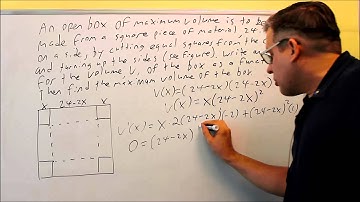 An open box of maximum volume is to be
made from a square piece of material 24
on a side, by cutting equal squares from the
and turning up the sides (see figure). Write
for the volume V, of the box as a func
Then find maximum volume of the box
V(x) = (24-2x)(24-2x)
V(x) = x(24-2x)²
x 24-2x x
V'(x) = x·2(24-2x)(-2) + (24-2x)²(1)
0 = (24-2x)